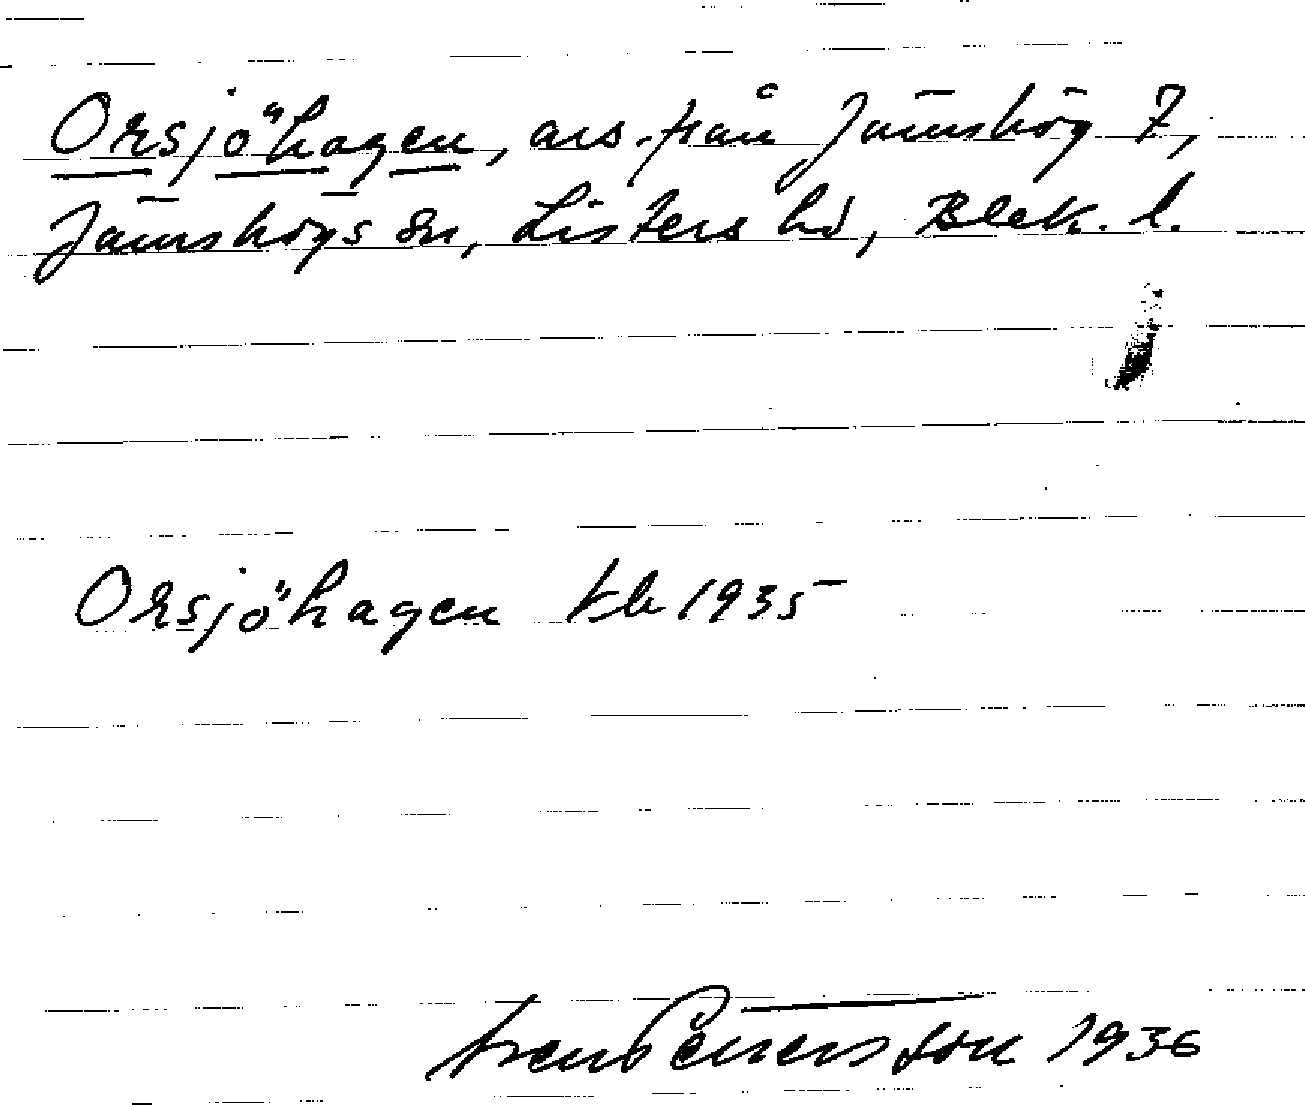 Orsjöhagen, avs. från Jämshög 7,
Jämshögs sn, Listers hd, Blek. l.
Orsjöhagen kb 1935
Pettersson 1936